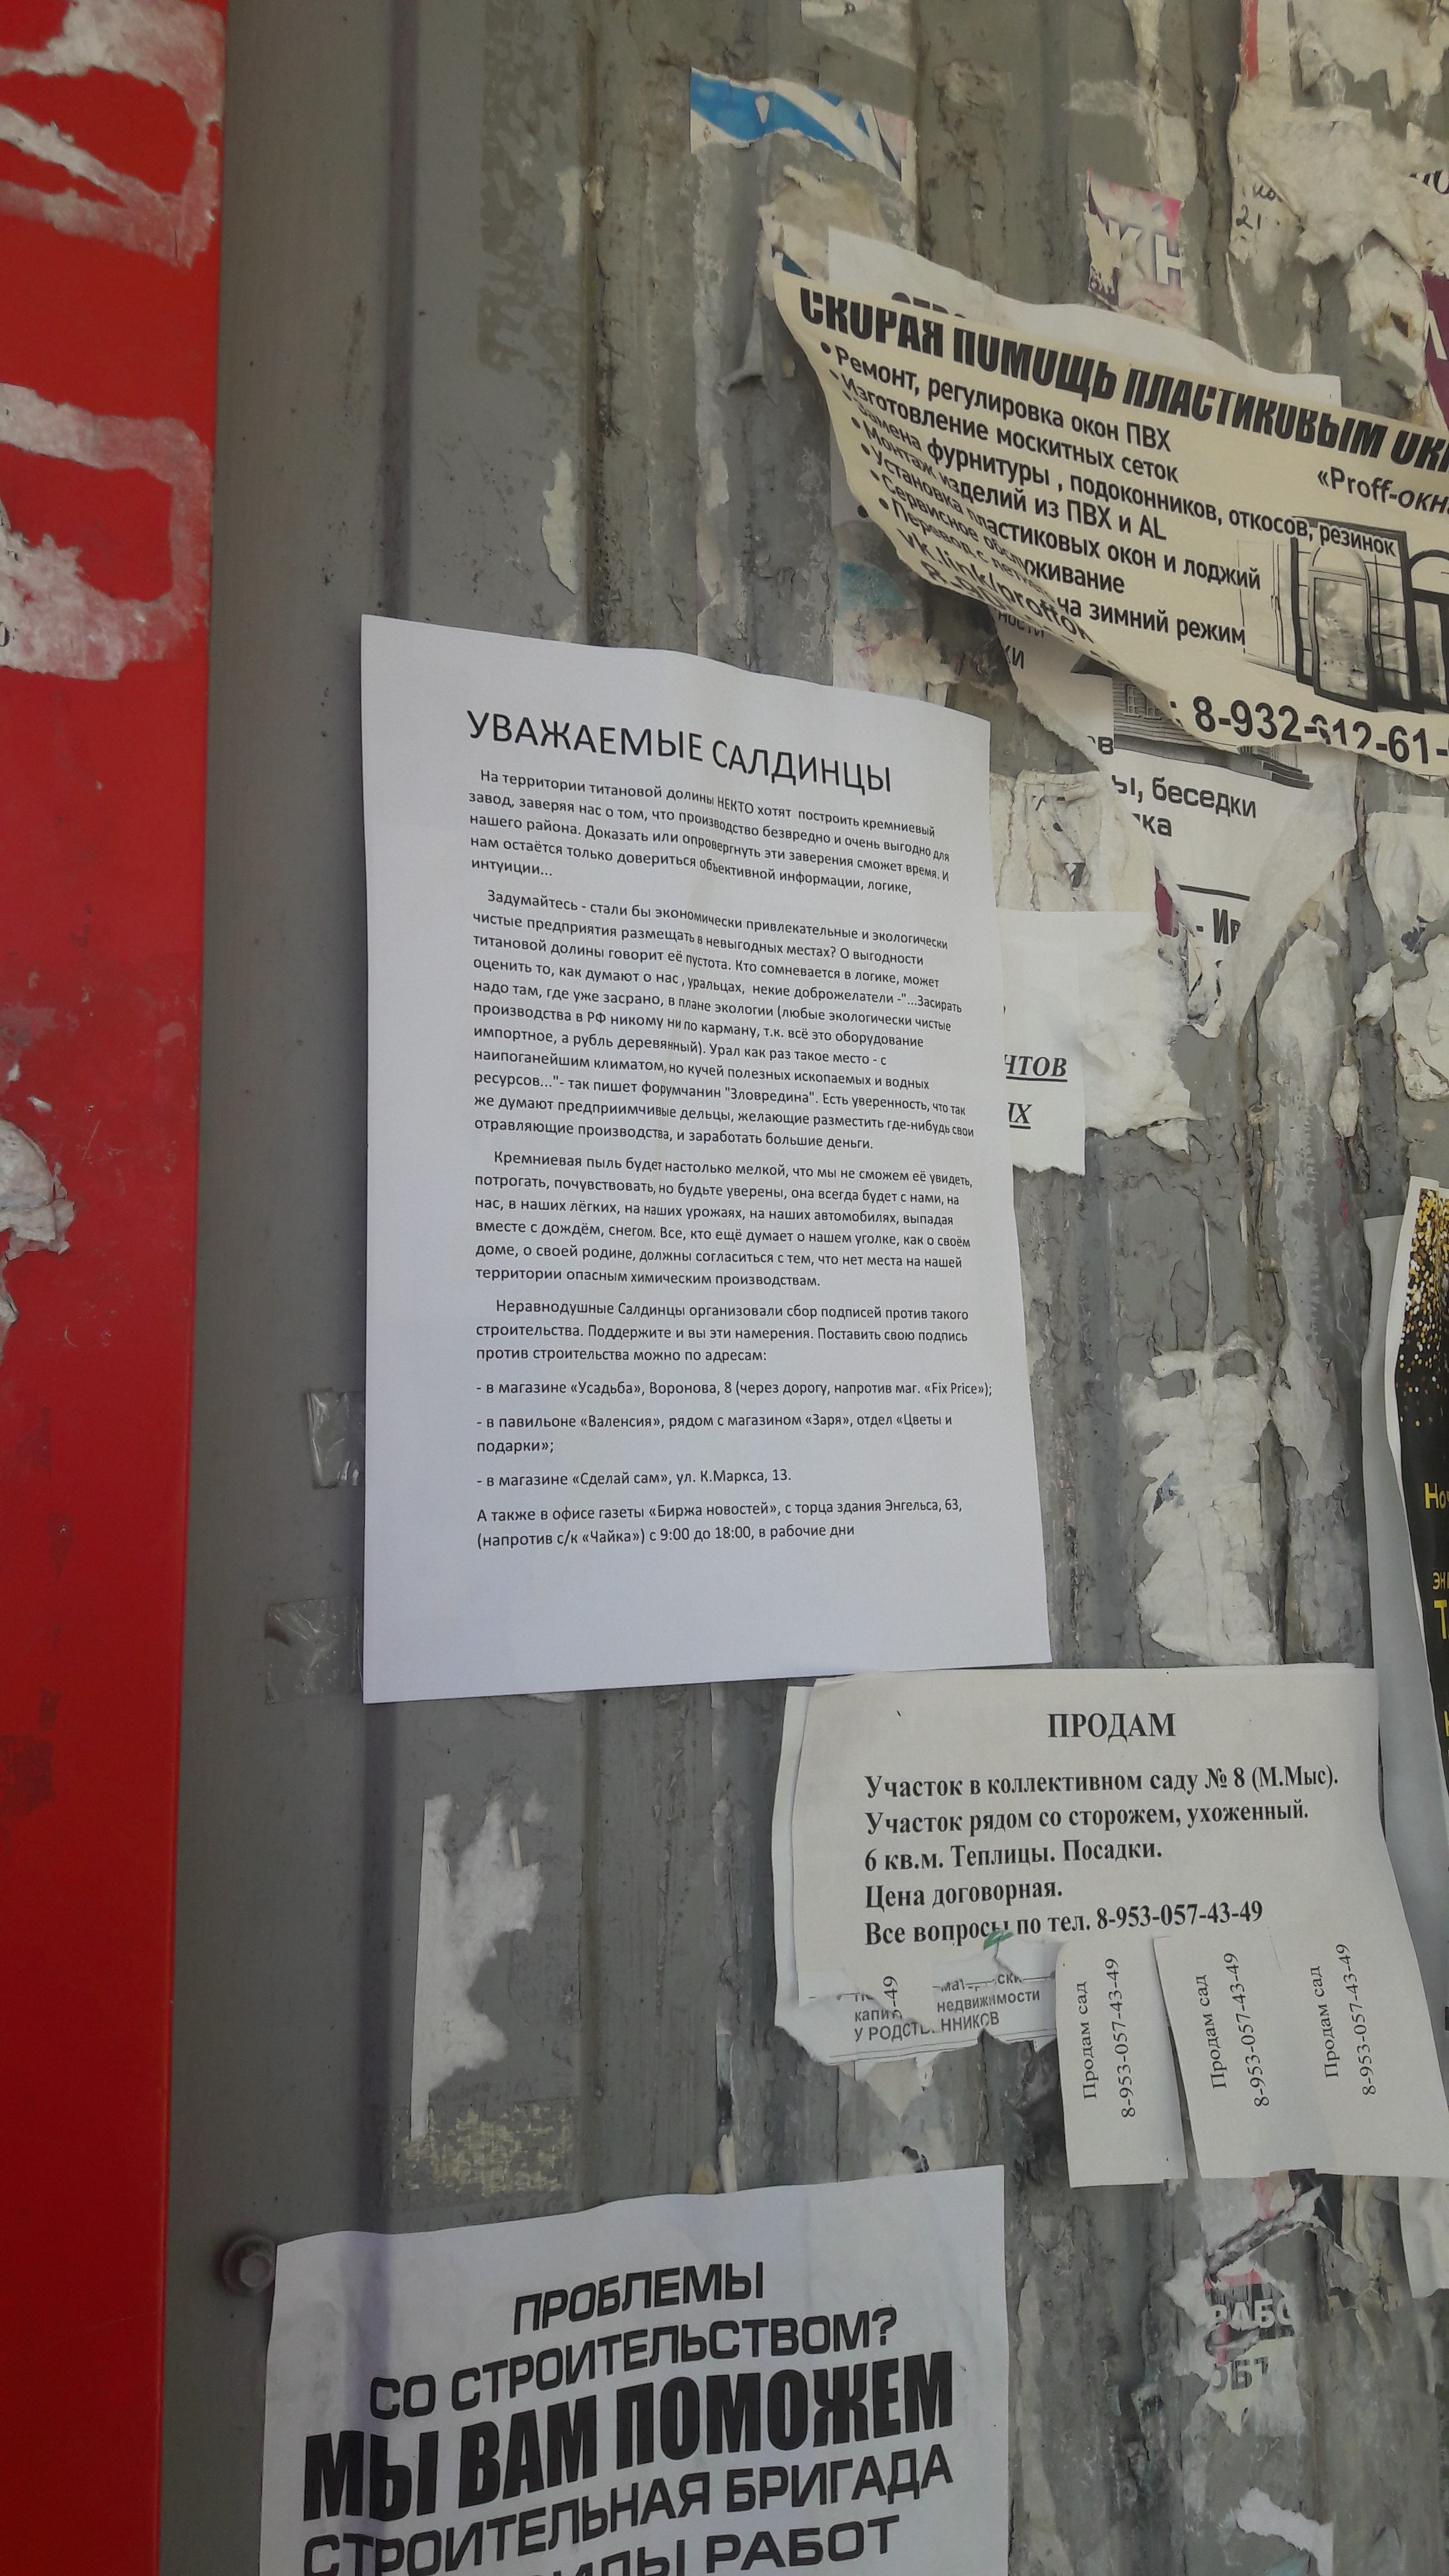 Ж Н
21
СКОРАЯ ПОМОЩЬ ПЛАСТИКОВЫМ
«Proff-окн
• Ремонт, регулировка окон ПВХ
• Изготовление москитных сеток
• Замена фурнитуры , подоконников, откосов, резинок
• Монтаж изделий из ПВХ и AL
• Установка пластиковых окон и лоджий
• Сервисное обслуживание
• Перевод с летнего на зимний режим
8-932-612-61-
ы, беседки
ка
НТОВ
ИХ
УВАЖАЕМЫЕ САЛДИНЦЫ
На территории титановой долины НЕКТО хотят построить кремниевый
завод, заверяя нас о том, что производство безвредно и очень выгодно для
нашего района. Доказать или опровергнуть эти заверения сможет время. И
нам остаётся только довериться объективной информации, логике,
интуиции...
Задумайтесь - стали бы экономически привлекательные и экологически
чистые предприятия размещать в невыгодных местах? О выгодности
титановой долины говорит её пустота. Кто сомневается в логике, может
оценить то, как думают о нас , уральцах, некие доброжелатели -"...Засирать
надо там, где уже засрано, в плане экологии (любые экологически чистые
производства в РФ никому ни по карману, т.к. всё это оборудование
импортное, а рубль деревянный). Урал как раз такое место - с
наипоганейшим климатом, но кучей полезных ископаемых и водных
ресурсов..."- так пишет форумчанин "Зловредина". Есть уверенность, что так
же думают предприимчивые дельцы, желающие разместить где-нибудь свои
отравляющие производства, и заработать большие деньги.
Кремниевая пыль будет настолько мелкой, что мы не сможем её увидеть,
потрогать, почувствовать, но будьте уверены, она всегда будет с нами, на
нас, в наших лёгких, на наших урожаях, на наших автомобилях, выпадая
вместе с дождём, снегом. Все, кто ещё думает о нашем уголке, как о своём
доме, о своей родине, должны согласиться с тем, что нет места на нашей
территории опасным химическим производствам.
Неравнодушные Салдинцы организовали сбор подписей против такого
строительства. Поддержите и вы эти намерения. Поставить свою подпись
против строительства можно по адресам:
- в магазине «Усадьба», Воронова, 8 (через дорогу, напротив маг. «Fix Price»);
- в павильоне «Валенсия», рядом с магазином «Заря», отдел «Цветы и
подарки»;
- в магазине «Сделай сам», ул. К.Маркса, 13.
А также в офисе газеты «Биржа новостей», с торца здания Энгельса, 63,
(напротив с/к «Чайка») с 9:00 до 18:00, в рабочие дни
ПРОДАМ
Участок в коллективном саду № 8 (М.Мыс).
Участок рядом со сторожем, ухоженный.
6 кв.м. Теплицы. Посадки.
Цена договорная.
Все вопросы по тел. 8-953-057-43-49
недвижимости
Продам сад
8-953-057-43-49
Продам сад
8-953-057-43-49
Продам сад
8-953-057-43-49
ПРОБЛЕМЫ
СО СТРОИТЕЛЬСТВОМ?
МЫ ВАМ ПОМОЖЕМ
СТРОИТЕЛЬНАЯ БРИГАДА
РАБОТ